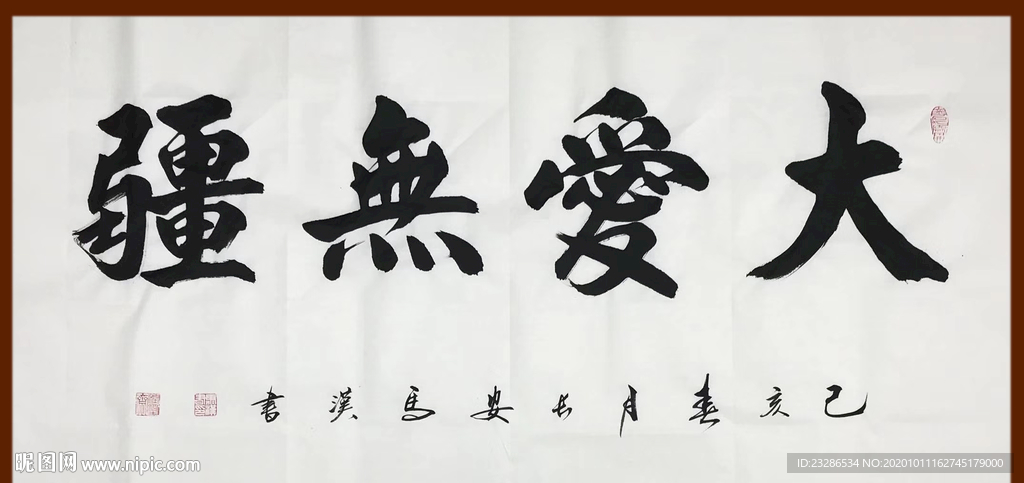 大愛無疆
己亥春月長安馬漢書
昵图网 www.nipic.com
ID:23286534 NO:20201011162745179000